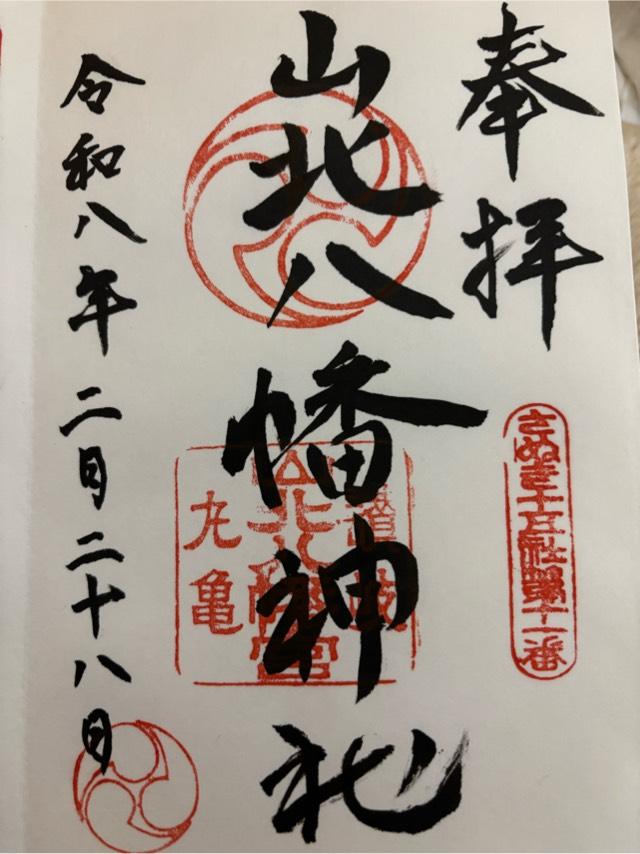 奉拝
さぬき十五社第十一番
山北八幡神社
丸亀
山北八幡宮
令和八年二月二十八日